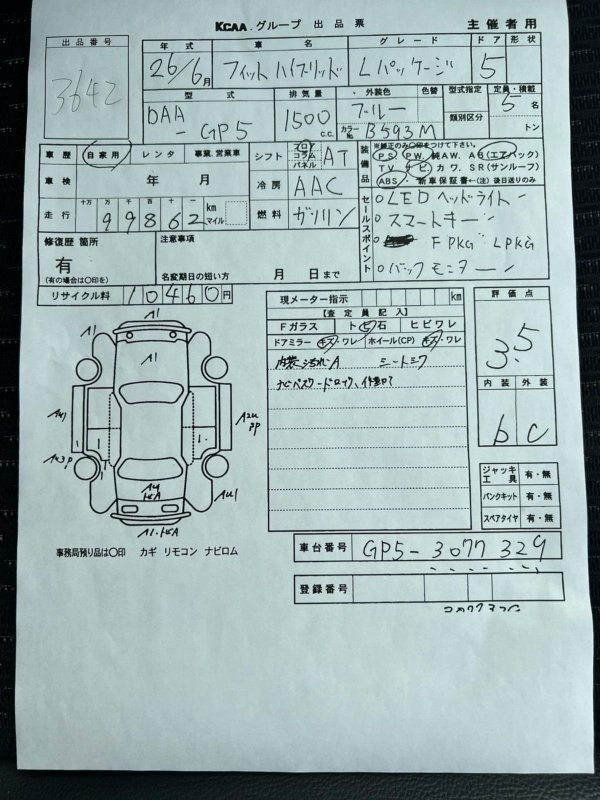 KCAA.グループ 出品票 主催者用
出品番号 年式 車名 グレード ドア 形状
3642 26/6月 フィットハイブリッド Lパッケージ 5
型式 排気量 外装色 色替 型式指定 定員・積載
DAA-GP5 1500 c.c. ブルー カラーNo. B593M 類別区分 5名 トン
車歴 自家用 レンタ 事業.営業車 シフト フロア コラム パネル AT
装備品 ※純正のみ〇印をつけて下さい。
PS PW. 純AW. AB(エアバック)
車検 年 月 冷房 AAC
TV ナビ カワ. SR(サンルーフ)
ABS 新車保証書←(注)後日送りのみ
走行 十万 万 千 百 十 一 99862 km マイル 燃料 ガソリン
セールスポイント
LEDヘッドライト
スマートキー
FPKG LPKG
バックモニター
修復歴 箇所 有 (有の場合は〇印を)
注意事項
名変期日の短い方 月 日まで
リサイクル料 10460円
現メーター指示 km
【査定員記入】
Fガラス トビ石 ヒビワレ
ドアミラー キズ・ワレ ホイール(CP) キズ・ワレ
内装汚れA シートミワ
ナビパスワードロック、作動OK?
評価点
3.5
内装 外装
b C
A1 A1
A1
A2U
PP
A43P
AU1
A4
トビA
A1・トビA
ジャッキ 工具 有・無
パンクキット 有・無
スペアタイヤ 有・無
事務局預り品は〇印 カギ リモコン ナビロム
車台番号 GP5-3077329
登録番号